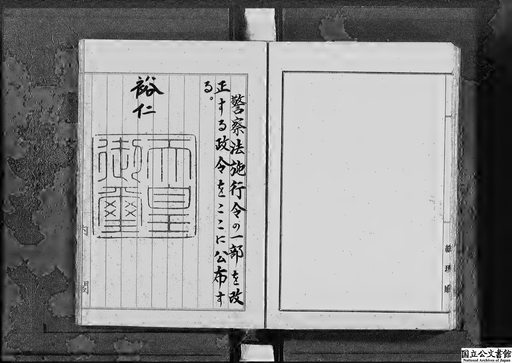 警察法施行令の一部を改
正する政令をここに公布す
る。
裕仁
天皇
御璽
国立公文書館
National Archives of Japan